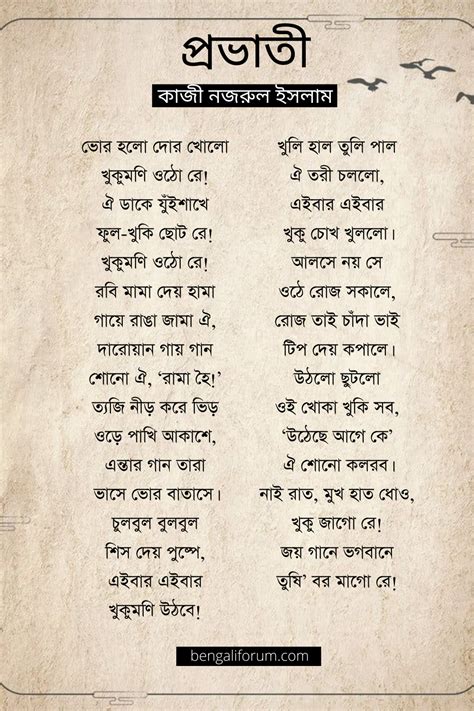 প্রভাতী
কাজী নজরুল ইসলাম
ভোর হলো দোর খোলো
খুকুমণি ওঠো রে!
ঐ ডাকে যুঁইশাখে
ফুল-খুকি ছোট রে!
খুকুমণি ওঠো রে!
রবি মামা দেয় হামা
গায়ে রাঙা জামা ঐ,
দারোয়ান গায় গান
শোনো ঐ, ‘রামা হৈ!’
ত্যজি নীড় করে ভিড়
ওড়ে পাখি আকাশে,
এন্তার গান তারা
ভাসে ভোর বাতাসে।
চুলবুল বুলবুল
শিস দেয় পুষ্পে,
এইবার এইবার
খুকুমণি উঠবে!
খুলি হাল তুলি পাল
ঐ তরী চললো,
এইবার এইবার
খুকু চোখ খুললো।
আলসে নয় সে
ওঠে রোজ সকালে,
রোজ তাই চাঁদা ভাই
টিপ দেয় কপালে।
উঠলো ছুটলো
ওই খোকা খুকি সব,
‘উঠেছে আগে কে’
ঐ শোনো কলরব।
নাই রাত, মুখ হাত ধোও,
খুকু জাগো রে!
জয় গানে ভগবানে
তুষি’ বর মাগো রে!
bengaliforum.com